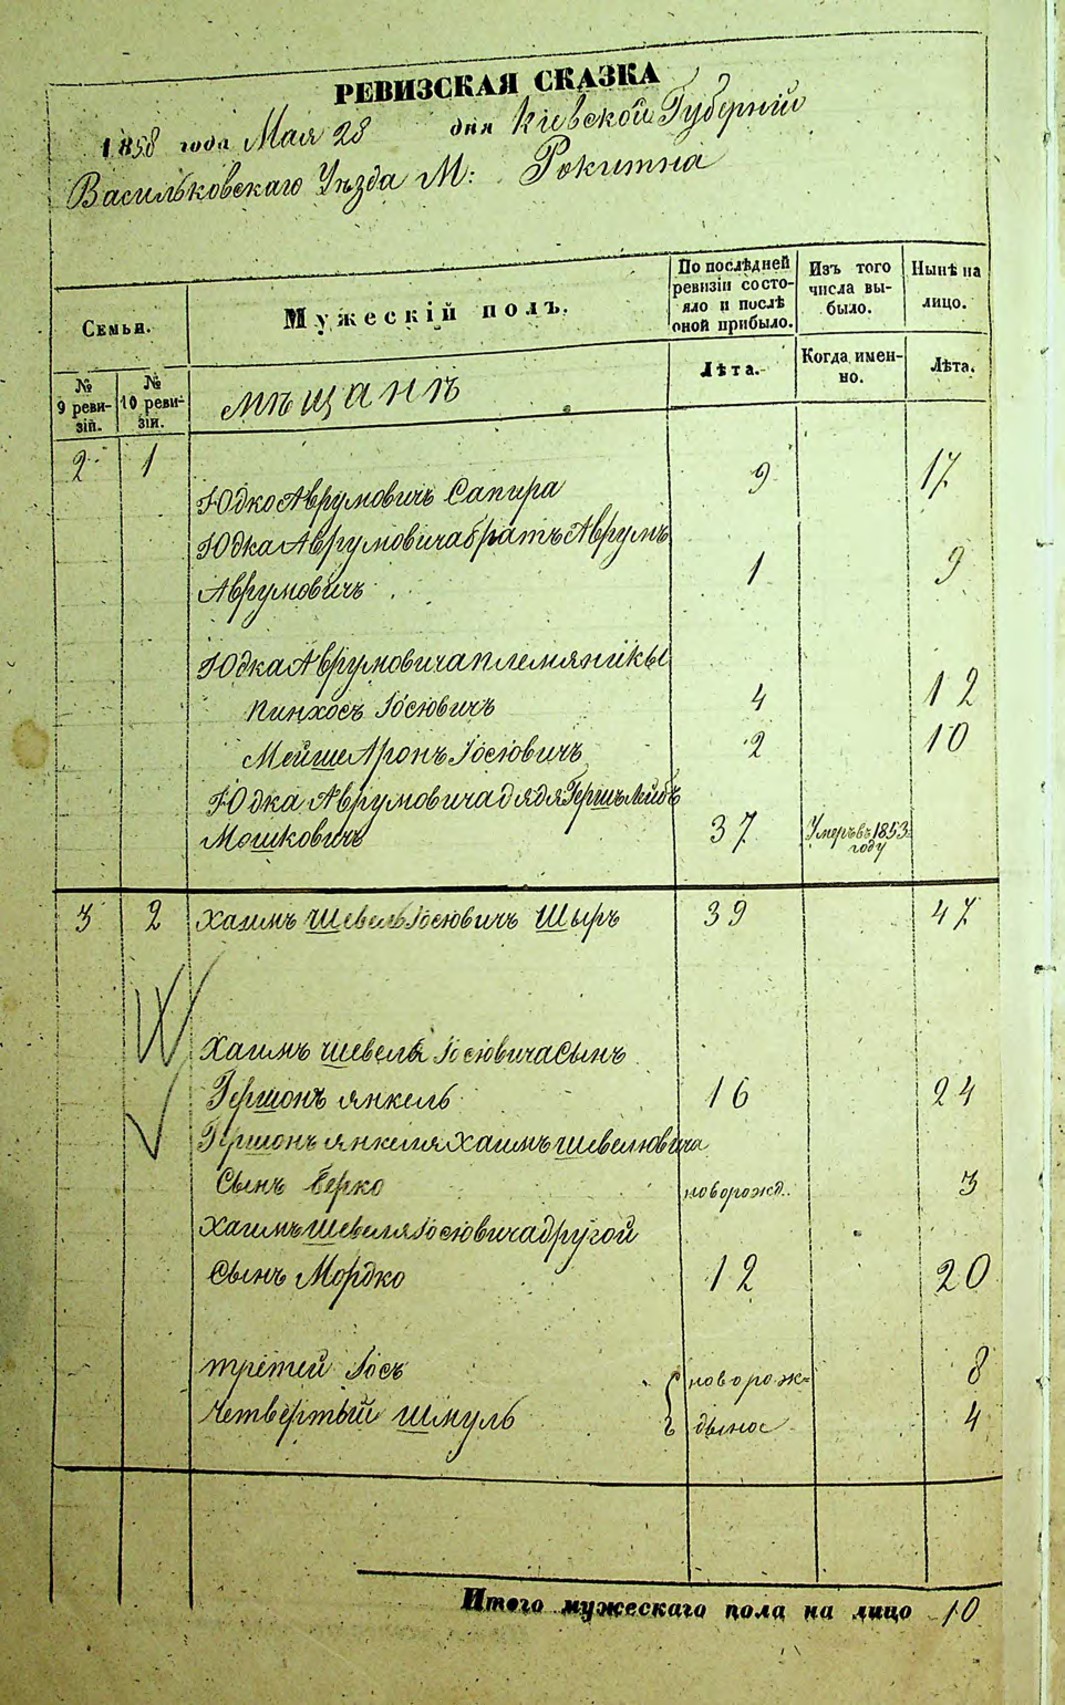 РЕВИЗСКАЯ СКАЗКА
1858 года Мая 28 дня Кіевской Губерніи
Васильковскаго Уѣзда М: Рокитна
Семьи.
Мужескій полъ.
По послѣдней ревизіи состояло и послѣ оной прибыло.
Изъ того числа выбыло.
Нынѣ на лицо.
№ 9 ревизій.
№ 10 ревизіи.
мѣщанѣ
Лѣта.
Когда именно.
Лѣта.
2 1
Юдко Аврумовичъ Сапира 9 17
Юдка Аврумовича братъ Аврумъ
Аврумовичъ 1 9
Юдка Аврумовича племяники
Пинхосъ Іосіовичъ 4 12
Мейше Аронъ Іосіовичъ 2 10
Юдка Аврумовича дядя Гершъ Лейбъ
Мошковичъ 37 Умеръ въ 1853 году
3 2 Хаимъ Шевель Іосіовичъ Шыръ 39 47
Хаимъ Шевеля Іосіовича Сынъ
Гершонъ Янкель 16 24
Гершонъ Янкеля Хаимъ Шевелювича
Сынъ Берко новорожд. 3
Хаимъ Шевеля Іосіовича другой
Сынъ Мордко 12 20
третей Іось новорож- 8
Четвертый Шмуль дыные 4
Итого мужескаго пола на лицо 10